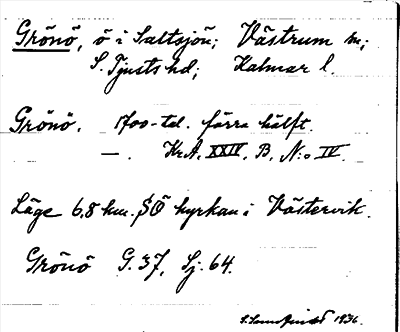 Grönö, ö i Saltsjön; Västrum sn;
S. Tjusts hd; Kalmar l.
Grönö. 1700-tal. förra hälft.
—. Kr.A. XXIV. B. N:o IV.
Läge 6,8 km. SÖ kyrkan i Västervik.
Grönö G. 37, Sj. 64.
1936.